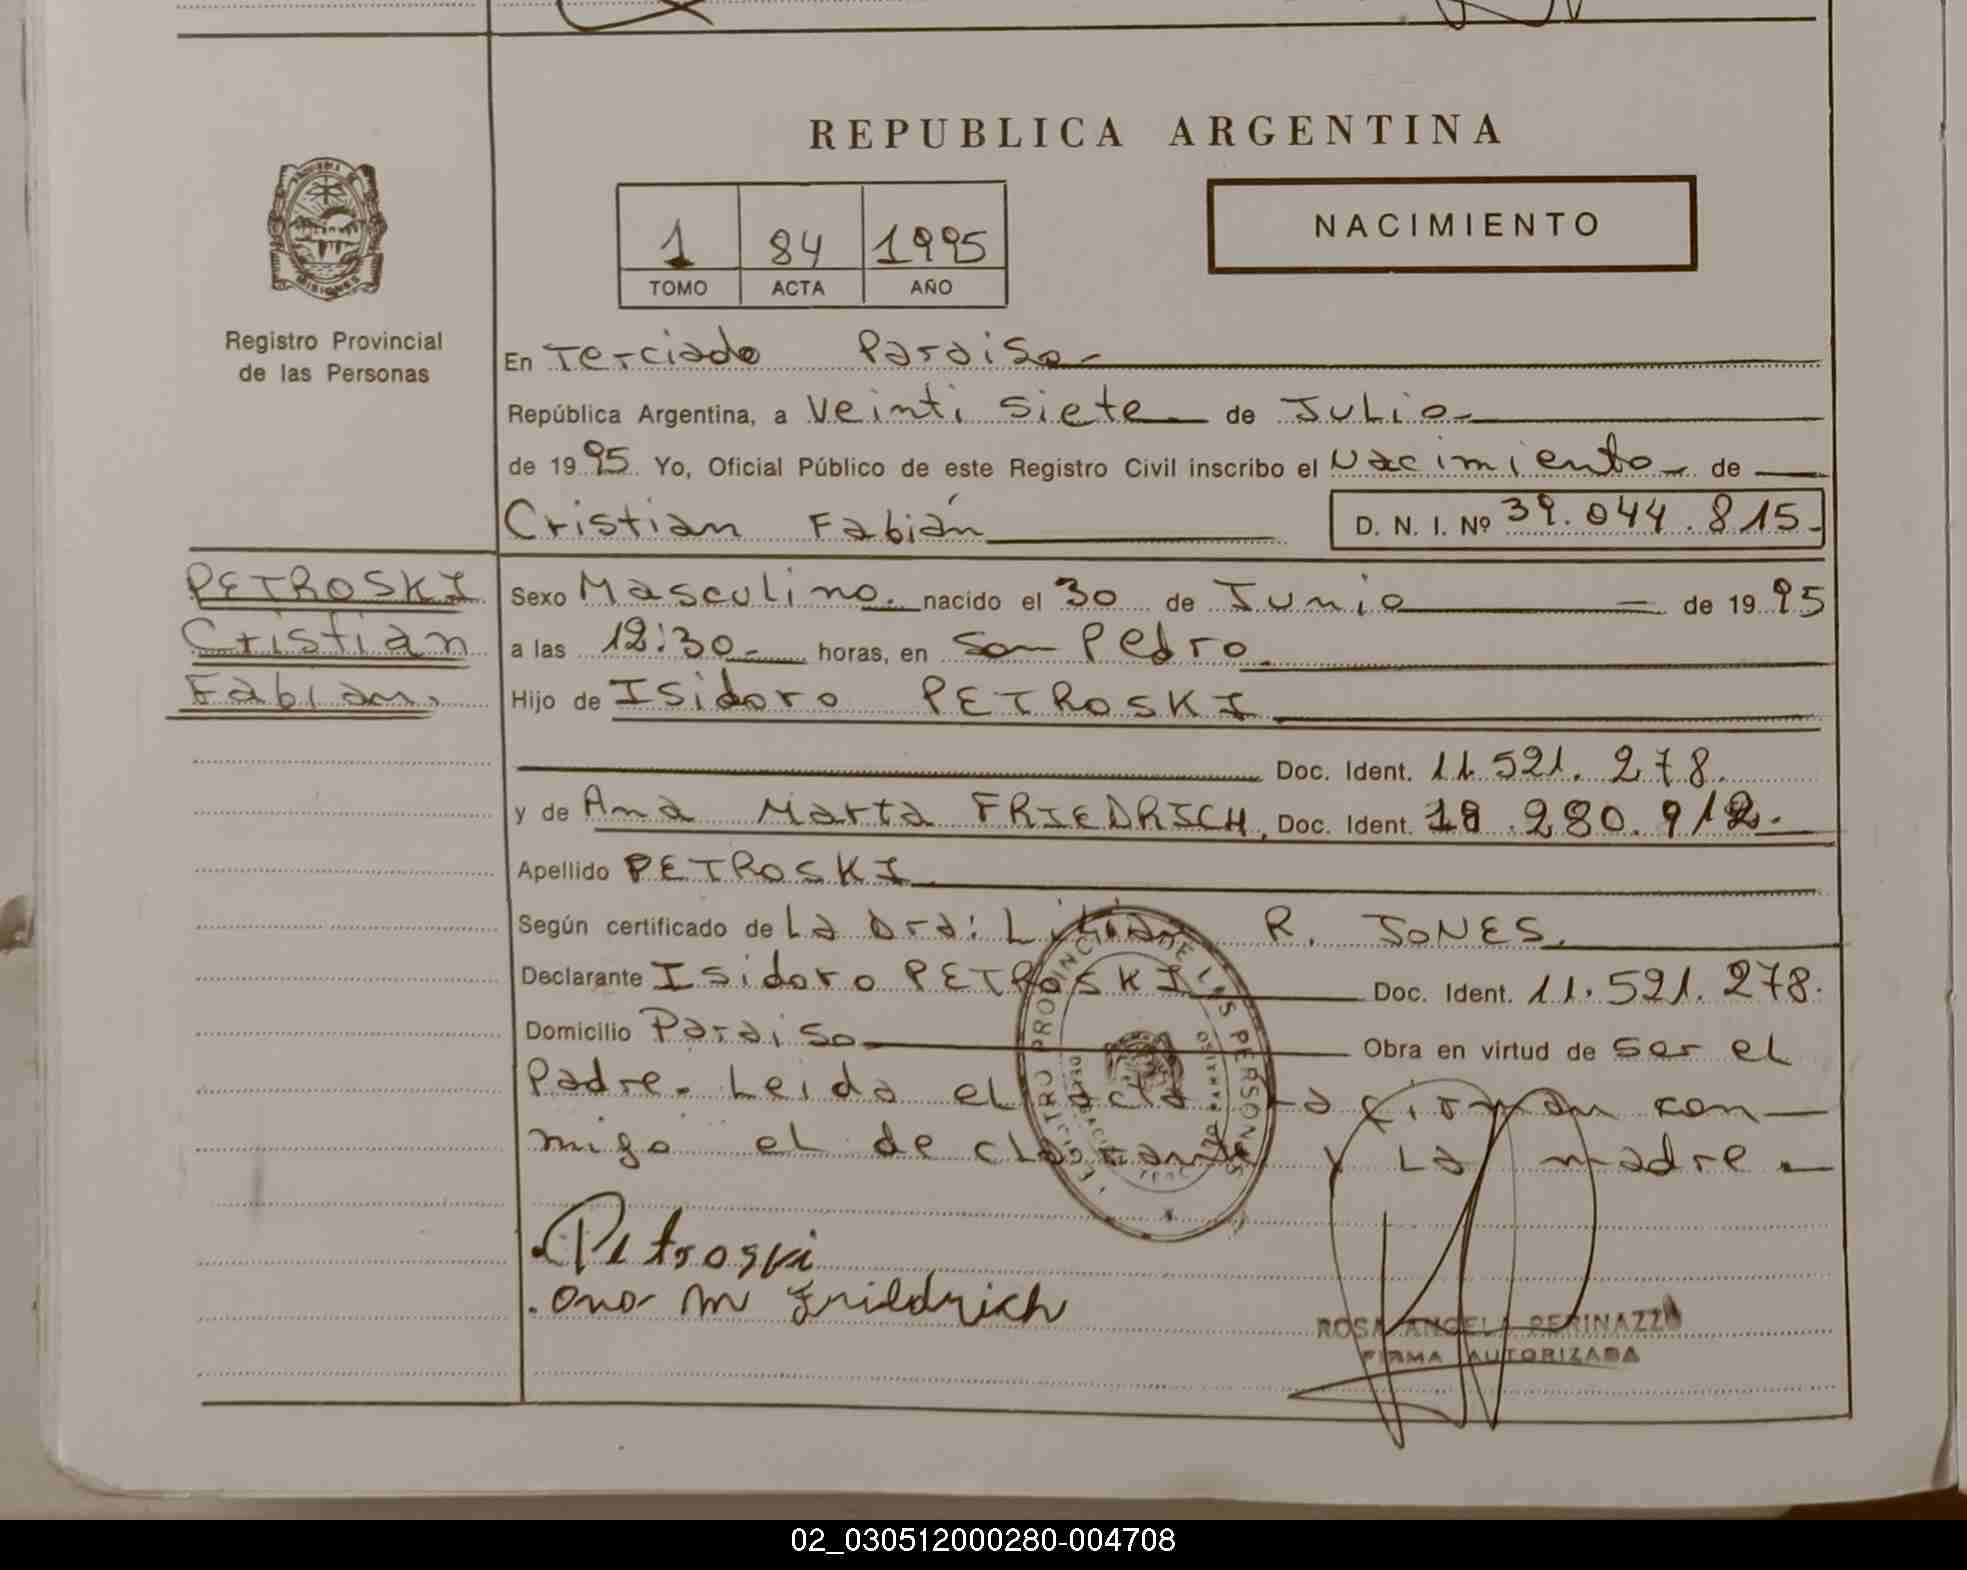 REPUBLICA ARGENTINA
1 84 1995
TOMO ACTA AÑO
NACIMIENTO
MISIONES
Registro Provincial
de las Personas
En Terciado Paraiso
República Argentina, a Veinti siete de Julio
de 1995 Yo, Oficial Público de este Registro Civil inscribo el Nacimiento de
Cristian Fabián D. N. I. Nº 39.044.815
PETROSKI
Cristian
Fabian.
Sexo Masculino. nacido el 30 de Junio de 1995
a las 12:30 horas, en San Pedro
Hijo de Isidoro PETROSKI
Doc. Ident. 11.521.278.
y de Ana Marta FRIEDRICH, Doc. Ident. 18.280.912.
Apellido PETROSKI
Según certificado de La Dra: Lilian R. JONES.
Declarante Isidoro PETROSKI Doc. Ident. 11.521.278.
Domicilio Paraiso Obra en virtud de ser el
Padre. Leida el acta La firman con
migo el declarante y La madre
REGISTRO PROVINCIAL DE LAS PERSONAS
Petroski
Ana M Friedrich
ROSA ANGELA PERINAZZO
FIRMA AUTORIZADA
02_030512000280-004708